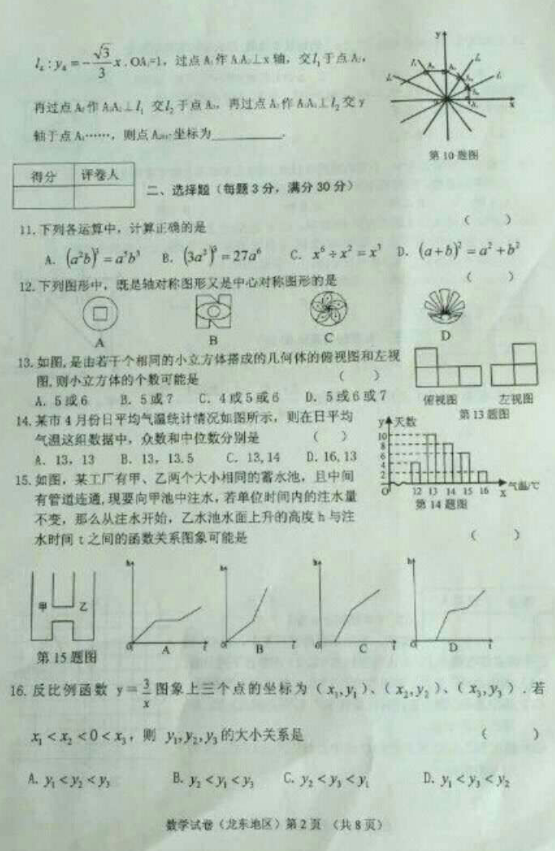 l₄：y₄=-√3/3 x．OA₁=1，过点A₁作A₁A₂⊥x轴，交l₁于点A₂，
再过点A₂作A₂A₃⊥l₁ 交l₂于点A₃，再过点A₃作A₃A₄⊥l₂交y
轴于点A₄……，则点A 坐标为________．
第10题图
得分 评卷人
二、选择题（每题3分，满分30分）
11.下列各运算中，计算正确的是 （ ）
A. (a²b)³=a⁵b³ B. (3a²)³=27a⁶ C. x⁶÷x²=x³ D. (a+b)²=a²+b²
12.下列图形中，既是轴对称图形又是中心对称图形的是 （ ）
A B C D
13.如图，是由若干个相同的小立方体搭成的几何体的俯视图和左视
图，则小立方体的个数可能是 （ ）
A. 5或6 B. 5或7 C. 4或5或6 D. 5或6或7
俯视图 左视图
第13题图
14.某市4月份日平均气温统计情况如图所示，则在日平均
气温这组数据中，众数和中位数分别是 （ ）
A. 13，13 B. 13，13.5 C. 13,14 D. 16,13
y 天数
10
8
6
4
2
O 12 13 14 15 16 x 气温/℃
第14题图
15.如图，某工厂有甲、乙两个大小相同的蓄水池，且中间
有管道连通，现要向甲池中注水，若单位时间内的注水量
不变，那么从注水开始，乙水池水面上升的高度h与注
水时间t之间的函数关系图象可能是 （ ）
甲 乙
第15题图
h h h h
O A t O B t O C t O D t
16.反比例函数 y=3/x 图象上三个点的坐标为（x₁,y₁）、（x₂,y₂）、（x₃,y₃）．若
x₁<x₂<0<x₃，则 y₁,y₂,y₃的大小关系是 （ ）
A. y₁<y₂<y₃ B. y₂<y₁<y₃ C. y₂<y₃<y₁ D. y₁<y₃<y₂
数学试卷（龙东地区）第2页 （共8页）